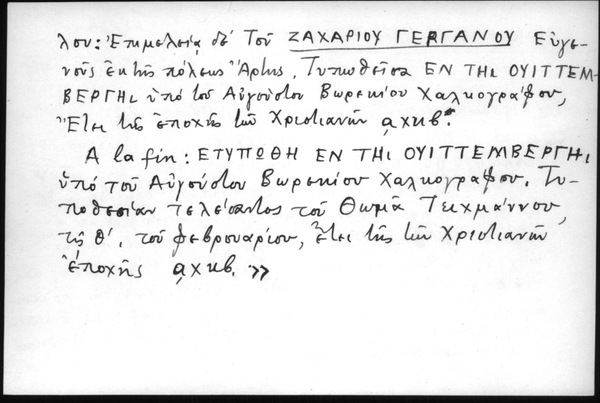 λου: Ἐπιμελείᾳ δὲ Τοῦ ΖΑΧΑΡΙΟΥ ΓΕΡΓΑΝΟΥ Εὐγε-
νοῦς ἐκ τῆς πόλεως Ἄρτης, Τυπωθεῖσα ΕΝ ΤΗι ΟΥΙΤΤΕΜ-
ΒΕΡΓΗι ὑπὸ τοῦ Αὐγούστου Βωρεκίου Χαλκογράφου,
Ἔτει τῆς ἐποχῆς τῶν Χριστιανῶν αχκβ.
A la fin: ΕΤΥΠΩΘΗ ΕΝ ΤΗι ΟΥΙΤΤΕΜΒΕΡΓΗι
ὑπό τοῦ Αὐγούστου Βωρεκίου Χαλκογράφου. Τυ-
ποθεσίαν τελέσαντος τοῦ Θωμᾶ Τειχμάννου,
τῆς θ΄. τοῦ φεβρουαρίου, Ἔτει τῆς τῶν Χριστιανῶν
ἐποχῆς αχκβ. »